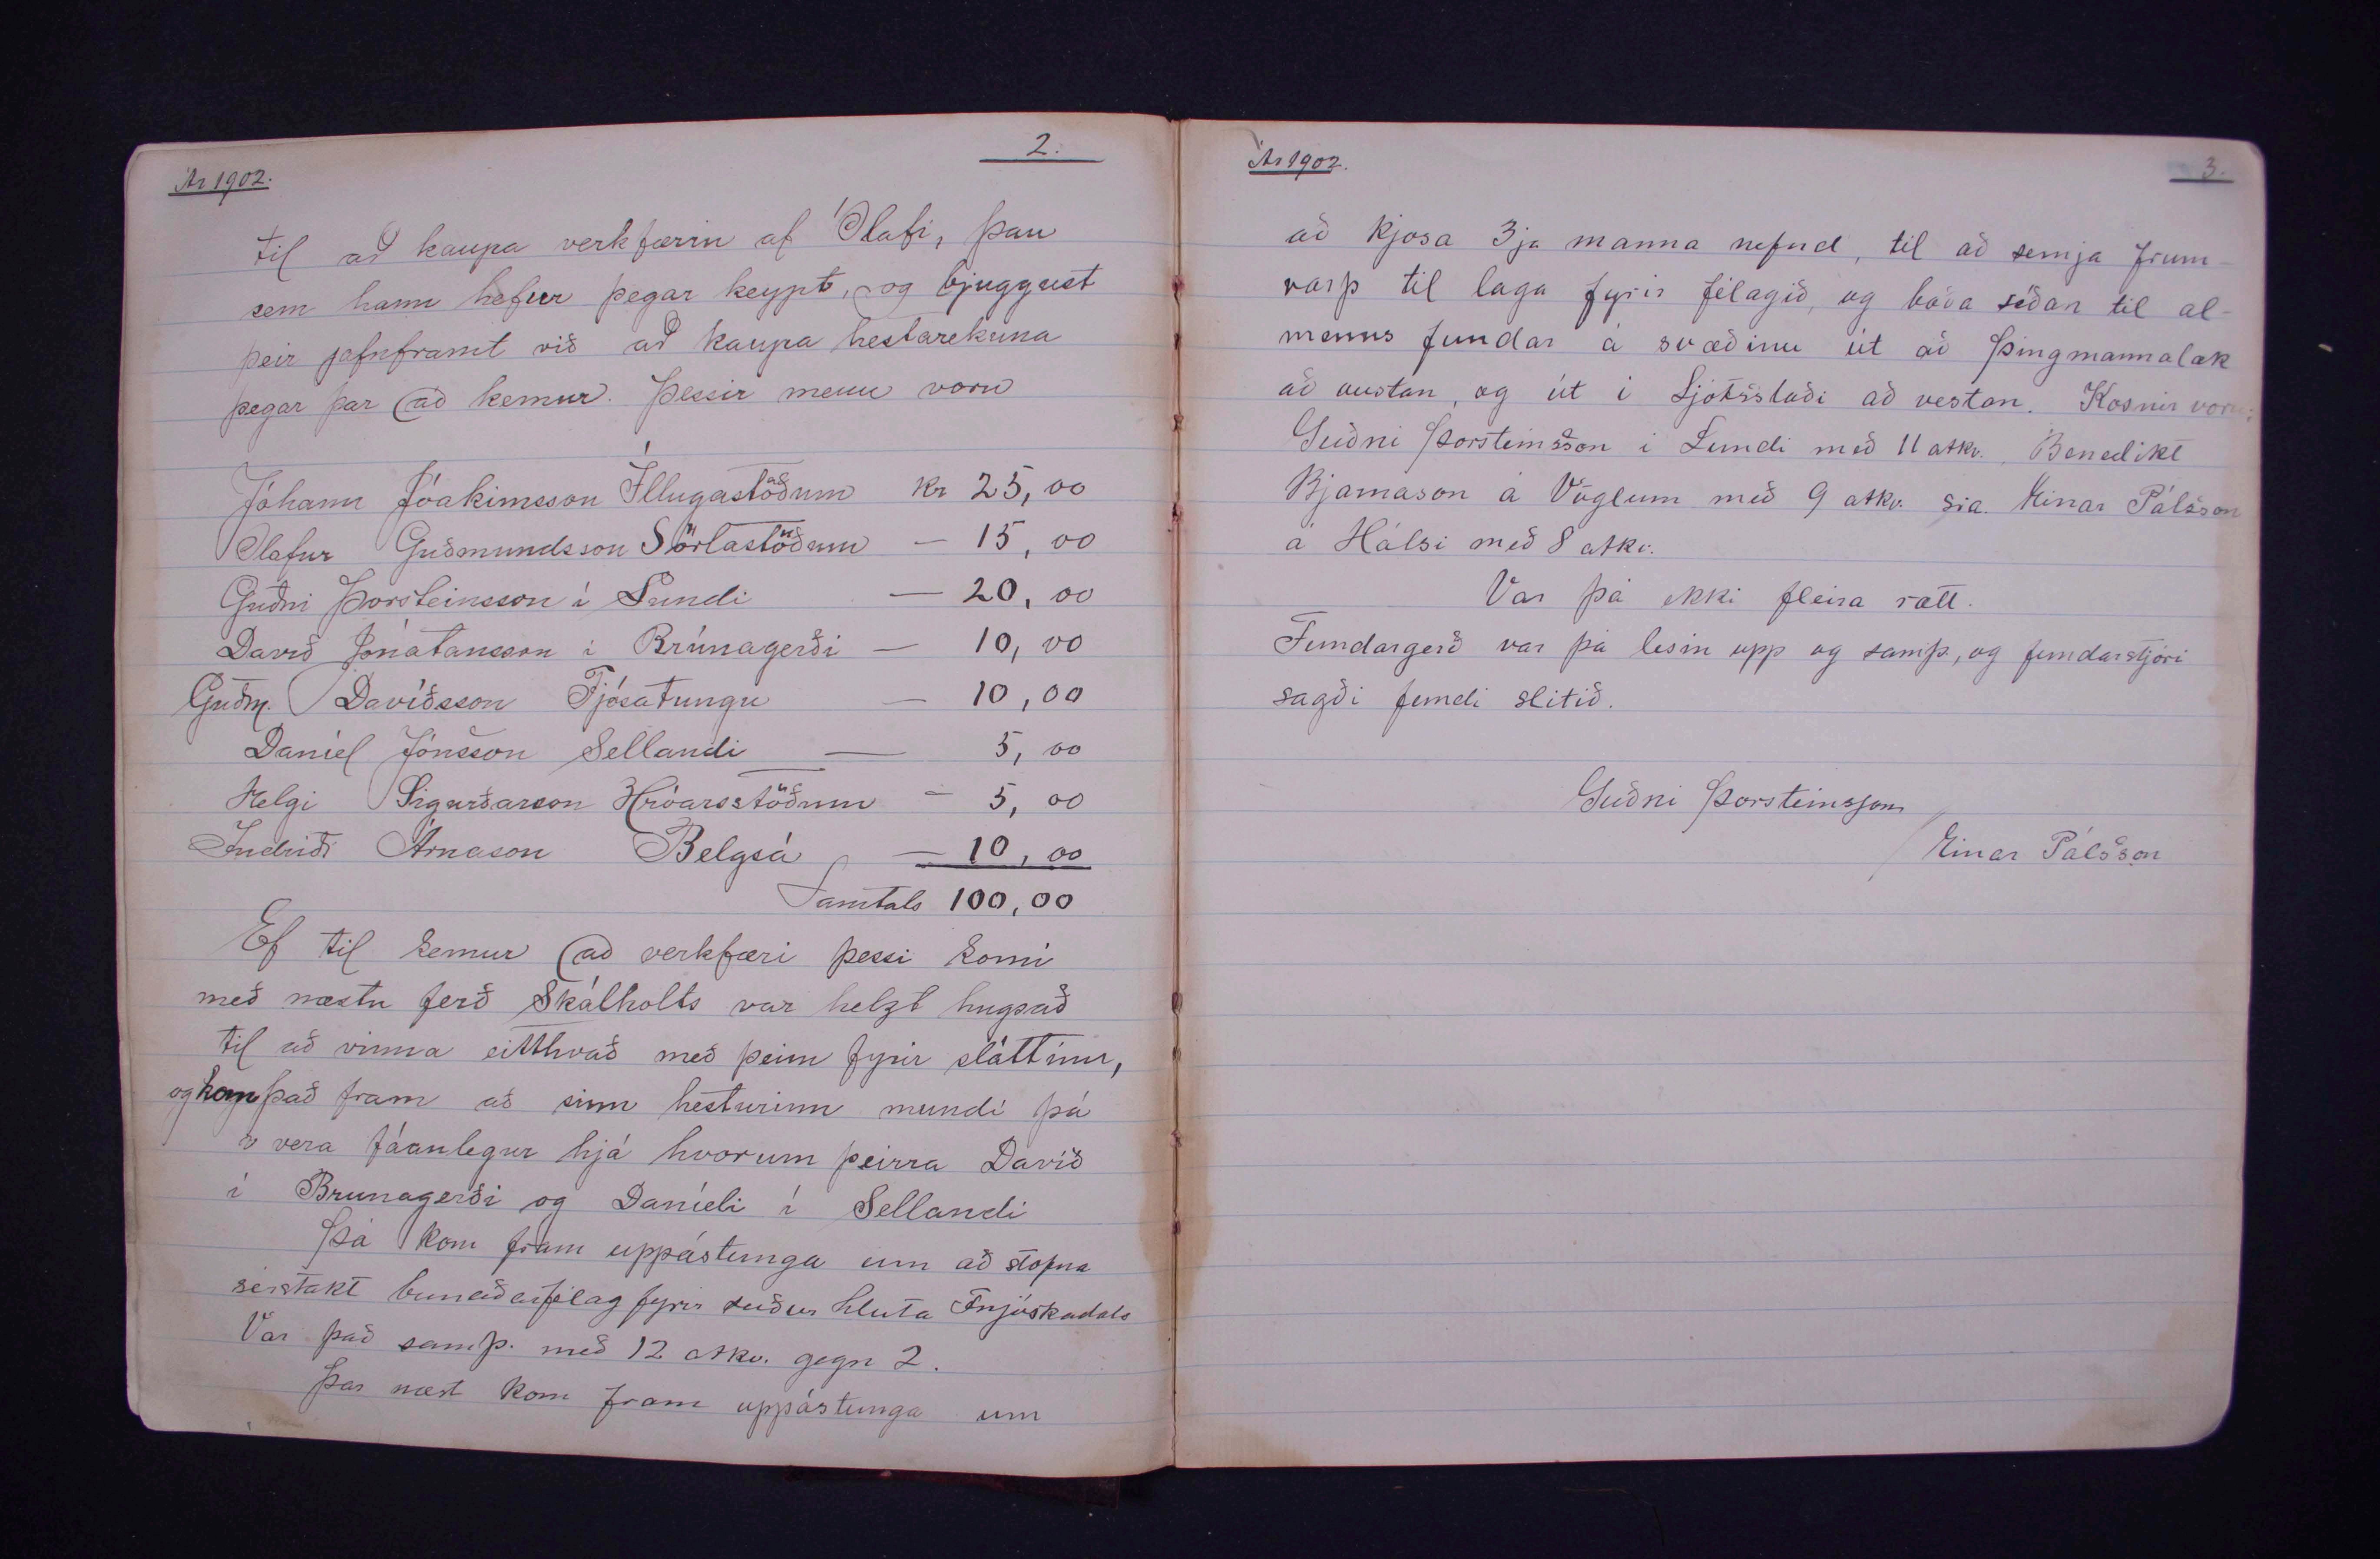 Ár 1902.
2.
til að kaupa verkfærin af Ólafi, þau
sem hann hefur þegar keypt, og bjuggust
þeir jafnframt við að kaupa hestarekuna
þegar þar að kemur. Þessir menn voru
Jóhann Jóakimsson Illugastöðum kr 25,00
Ólafur Guðmundsson Sörlastöðum — 15,00
Guðni Þorsteinsson í Lundi — 20,00
Davíð Jónatansson í Brúnagerði — 10,00
Guðm. Davíðsson Fjósatungu — 10,00
Daníel Jónsson Sellandi — 5,00
Helgi Sigurðarson Hróarsstöðum — 5,00
Indriði Árnason Belgsá — 10,00
Samtals 100,00
Ef til kemur að verkfæri þessi komi
með næstu ferð Skálholts var helzt hugsað
til að vinna eitthvað með þeim fyrir sláttinn,
og kom það fram að sinn hesturinn mundi þá
vera fáanlegur hjá hvorum þeirra Davíð
í Brunagerði og Daníeli í Sellandi
Þá kom fram uppástunga um að stofna
sérstakt bunaðarfélag fyrir suður hluta Fnjóskadals
Var það samþ. með 12 atkv. gegn 2.
Þar næst kom fram uppástunga um
Ár 1902.
3.
að kjósa 3ja manna nefnd, til að semja frum-
varp til laga fyrir félagið, og boða síðan til al-
menns fundar á svæðinu út að Þingmannalæk
að austan, og út í Ljótsstaði að vestan. Kosnir voru:
Guðni Þorsteinsson í Lundi með 11 atkv., Benedikt
Bjarnason á Vöglum með 9 atkv. sra. Einar Pálsson
á Hálsi með 8 atkv.
Var þá ekki fleira rætt.
Fundargerð var þá lesin upp og samþ., og fundarstjóri
sagði fundi slitið.
Guðni Þorsteinsson
/ Einar Pálsson